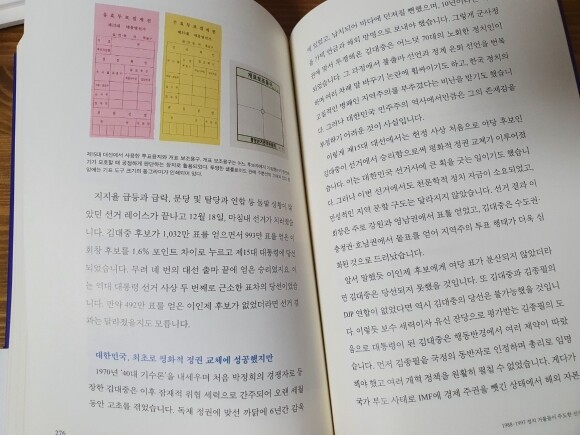 유효투표집계전
제15대 대통령선거
무효투표집계전
제15대 대통령선거
지지율 급등과 급락, 분당 및 탈당과 연합 등 돌발 상황이 많
았던 선거 레이스가 끝나고 12월 18일, 마침내 선거가 치러졌습
니다. 김대중 후보가 1,032만 표를 얻으면서 993만 표를 얻은 이
회창 후보를 1.6% 포인트 차이로 누르고 제15대 대통령에 당선
되었습니다. 무려 네 번의 대선 출마 끝에 얻은 승리였지요. 이
는 역대 대통령 선거 사상 두 번째로 근소한 표차의 당선이었습
니다. 만약 492만 표를 얻은 이인제 후보가 없었더라면 선거 결
과는 달라졌을지도 모릅니다.
대한민국, 최초로 평화적 정권 교체에 성공했지만
1970년 '40대 기수론'을 내세우며 처음 박정희의 경쟁자로 등
장한 김대중은 이후 잠재적 위협 세력으로 간주되어 오랜 세월
동안 고초를 겪었습니다. 독재 정권에 맞선 까닭에 6년간 감옥
276
에 있었고, 납치되어 바다에 던져질 뻔했으며, 10년이나
가택 연금과 해외 망명으로 보내야 했습니다. 그렇게 군사정
권에 맞서 투쟁해온 김대중은 어느덧 70대의 노회한 정치인이
되었습니다. 그 과정에서 불출마 선언과 정계 은퇴 선언을 번복
하며 여러 차례 말 바꾸기 논란에 휩싸이기도 하고, 한국 정치의
고질적인 병폐인 지역주의를 부추겼다는 비난을 받기도 했습니
다. 그러나 대한민국 민주주의 역사에서만큼은 그의 존재감을
부정하기 어려운 것이 사실입니다.
이렇게 제15대 대선에서는 헌정 사상 처음으로 야당 후보인
김대중이 선거에서 승리함으로써 평화적 정권 교체가 이루어졌
습니다. 이는 대한민국 선거사에 큰 획을 긋는 일이기도 했습니
다. 그러나 이번 선거에서도 천문학적 정치 자금이 소요되었고,
만성적인 지역 분할 구도는 달라지지 않았습니다. 선거 결과 이
회창은 주로 강원과 영남권에서 표를 얻었고, 김대중은 수도권·
충청권·호남권에서 몰표를 얻어 지역주의 투표 행태가 더욱 심
화된 것으로 드러났습니다.
앞서 말했듯 이인제 후보에게 여당 표가 분산되지 않았더라
면 김대중은 당선되지 못했을 것입니다. 또 김대중과 김종필의
DJP 연합이 없었다면 역시 김대중의 당선은 불가능했을 것입니
다. 이렇듯 보수 세력이자 유신 잔당으로 평가받는 김종필의 도
움으로 대통령이 된 김대중은 행동반경에서 여러 제약이 따랐
습니다. 먼저 김종필을 국정의 동반자로 인정하며 총리로 임명
해야 했고 여러 개혁 정책을 원활히 펼칠 수 없었습니다. 게다가
국가 부도 사태로 IMF에 경제 주권을 뺏긴 상태에서 해외 자본